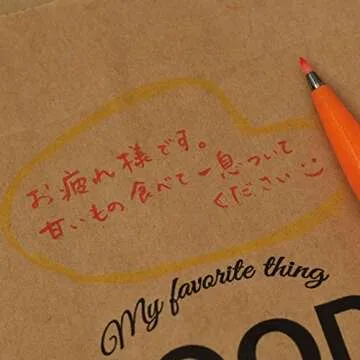 お疲れ様です。
甘いもの食べて一息ついて
ください
My favorite thing